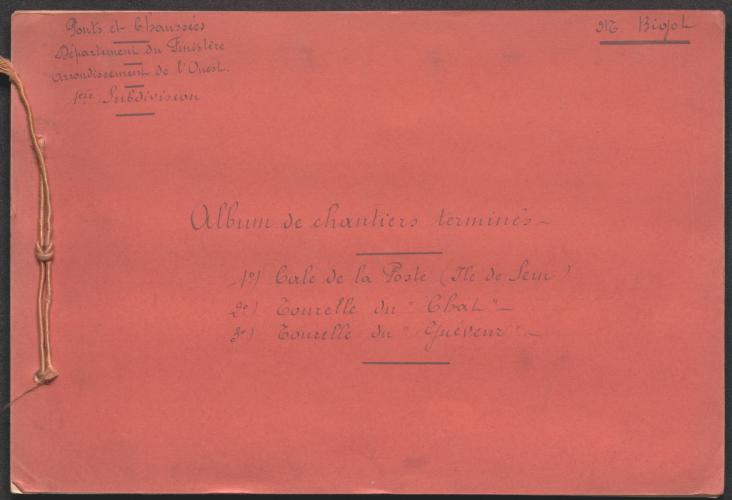 Ponts et Chaussées
Département du Finistère
Arrondissement de l'Ouest.
1ère Subdivision
M. Bigot
Album de chantiers terminés -
1º) Cale de la Poste (Ile de Sein)
2º) Tourelle du "Chat" -
3º) Tourelle du "Guéveur" -